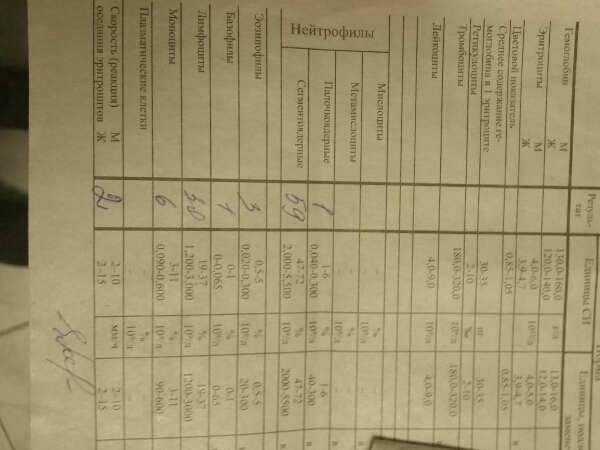 Резуль-
тат
Единицы СИ
Гемоглобин М 130,0-160,0 г/л 13,0-16,0
Ж 120,0-140,0 12,0-14,0
Эритроциты М 4,0-6,0 10¹²/л 4,0-5,0
Ж 3,9-4,7 3,9-4,7
Цветовой показатель 0,85-1,05 0,85-1,05
Среднее содержание ге-
моглобина в 1 эритроците 30-35 пг 30-35
Ретикулоциты 2-10 ‰ 2-10
Тромбоциты 180,0-320,0 10⁹/л 180,0-320,0
Лейкоциты 4,0-9,0 10⁹/л 4,0-9,0
Нейтрофилы
Миелоциты - %
- 10⁹/л
Метамиелоциты - %
- 10⁹/л
Палочкоядерные 1 1-6 % 1-6
0,040-0,300 10⁹/л 40-300
Сегментоядерные 59 47-72 % 47-72
2,000-5,500 10⁹/л 2000-5500
Эозинофилы 3 0,5-5 % 0,5-5
0,020-0,300 10⁹/л 20-300
Базофилы 1 0-1 % 0-1
0-0,065 10⁹/л 0-65
Лимфоциты 30 19-37 % 19-37
1,200-3,000 10⁹/л 1200-3000
Моноциты 6 3-11 % 3-11
0,090-0,600 10⁹/л 90-600
Плазматические клетки - %
- 10⁹/л
Скорость (реакция) М 2 2-10 мм/ч 2-10
оседания эритроцитов Ж 2-15 2-15